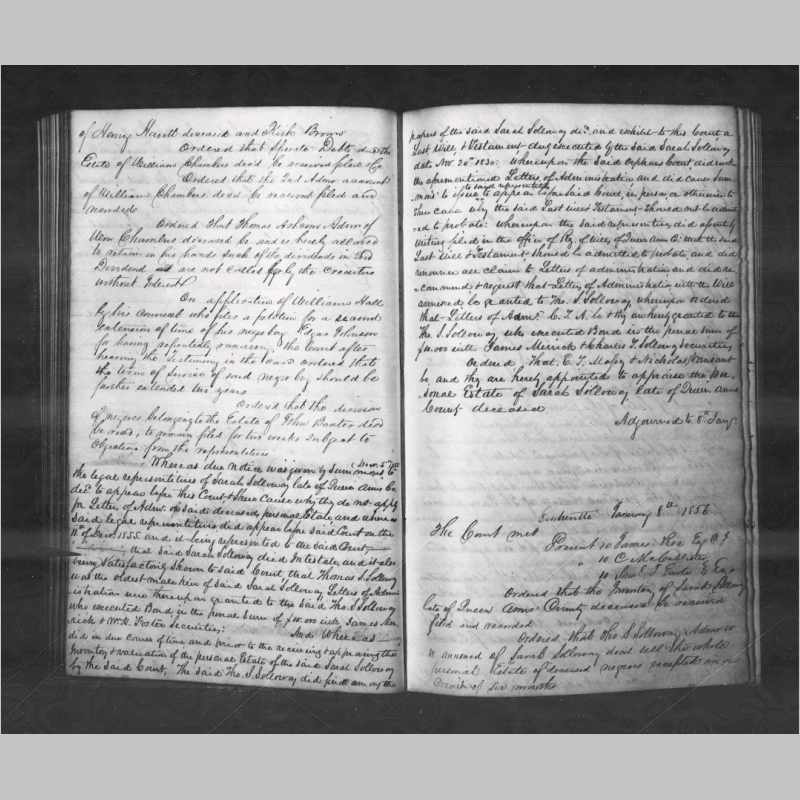 of Henry Harrett deceased and Kirk Brown
Ordered that Sperate Debts due the
Estate of William Chambers decd be received filed &c
Ordered that the 2nd Admr account
of William Chambers decd be received filed and
recorded
Ordered that Thomas Ashcom Admr of
Wm Chambers deceased be and is hereby allowed
to retain in his hands such of the dividends in the
Dividend as are not called for by the creditors
without Interest
On application of William Hall
by his counsel who files a petition for a second
extension of time of his negro boy Johnson
for having repeatedly runaway the Court after
hearing the Testimony in the case ordered that
the term of service of said negro boy should be
further extended two years
Ordered that the division
of negroes belonging to the Estate of John Baxter decd
be recd, to remain filed for two weeks subject to
Objection from the representatives
Whereas due notice was given by summons to
the legal representatives of Sarah Solloway late of Queen Anns Co
decd to appear before this Court & shew cause why they do not apply
for Letter of Admn on said deceaseds personal Estate and whereas
said legal representatives did appear before said Court on the
11th of Decr 1855 and it being represented to the said Court,
that said Sarah Solloway died Intestate and it also
being Satisfactorily shown to said Court, that Thomas S. Solloway
was the oldest male heir of said Sarah Solloway Letters of Admin
istration were thereupon granted to the said Thos S Solloway
who executed Bond in the penal sum of with James Mer
rick & Wm Foster Securities; And Whereas
did in due course of time and prior to the receiving & approving the
Inventory & valuation of the personal Estate of the said Sarah Solloway
by the said Court, The said Tho. S. Solloway did find among the
papers of the said Sarah Solloway decd and exhibit to this Court a
Last Will & Testament duly executed by the said Sarah Solloway
date Nov 20th whereupon the said Orphans Court did revoke
the aforementioned Letters of Administration and did cause Sum
mons to issue to said representatives to appear before said Court, in person or otherwise to
shew cause why the said Last Will & Testament should not be admit
ed to probate: whereupon the said representatives did appear by
writing filed in the office of Reg. of Wills of Queen Ann Co that the said
Last Will & Testament should be admitted to probate, and did
renounce all claim to Letters of administration and did re
commend & request that Letter of Administration with the Will
annexed be granted to Tho. S Solloway whereupon ordered
that Letters of Admn C. T. A. be & they are hereby granted to the
Tho. S. Solloway who executed Bond in the penal sum of
with James Merrick & Charles T. Solloway securities
Ordered That C. T. Massey & Nicholas
be and they are hereby appointed to appraise the Per
sonal Estate of Sarah Solloway late of Queen Anns
County deceased
Adjourned to 8th Jany
January 8th 1856
The Court met
Present Hon James Roe Esq C J
" W. C McCallister
" Saml T Esqs
Ordered that the Inventory of Sarah Solloway
late of Queen Anns County deceased be received
filed and recorded
Ordered that Tho S Solloway Admr w
w annexed of Sarah Solloway decd sell the whole
personal Estate of deceased negroes excepted on a
Credit of six months